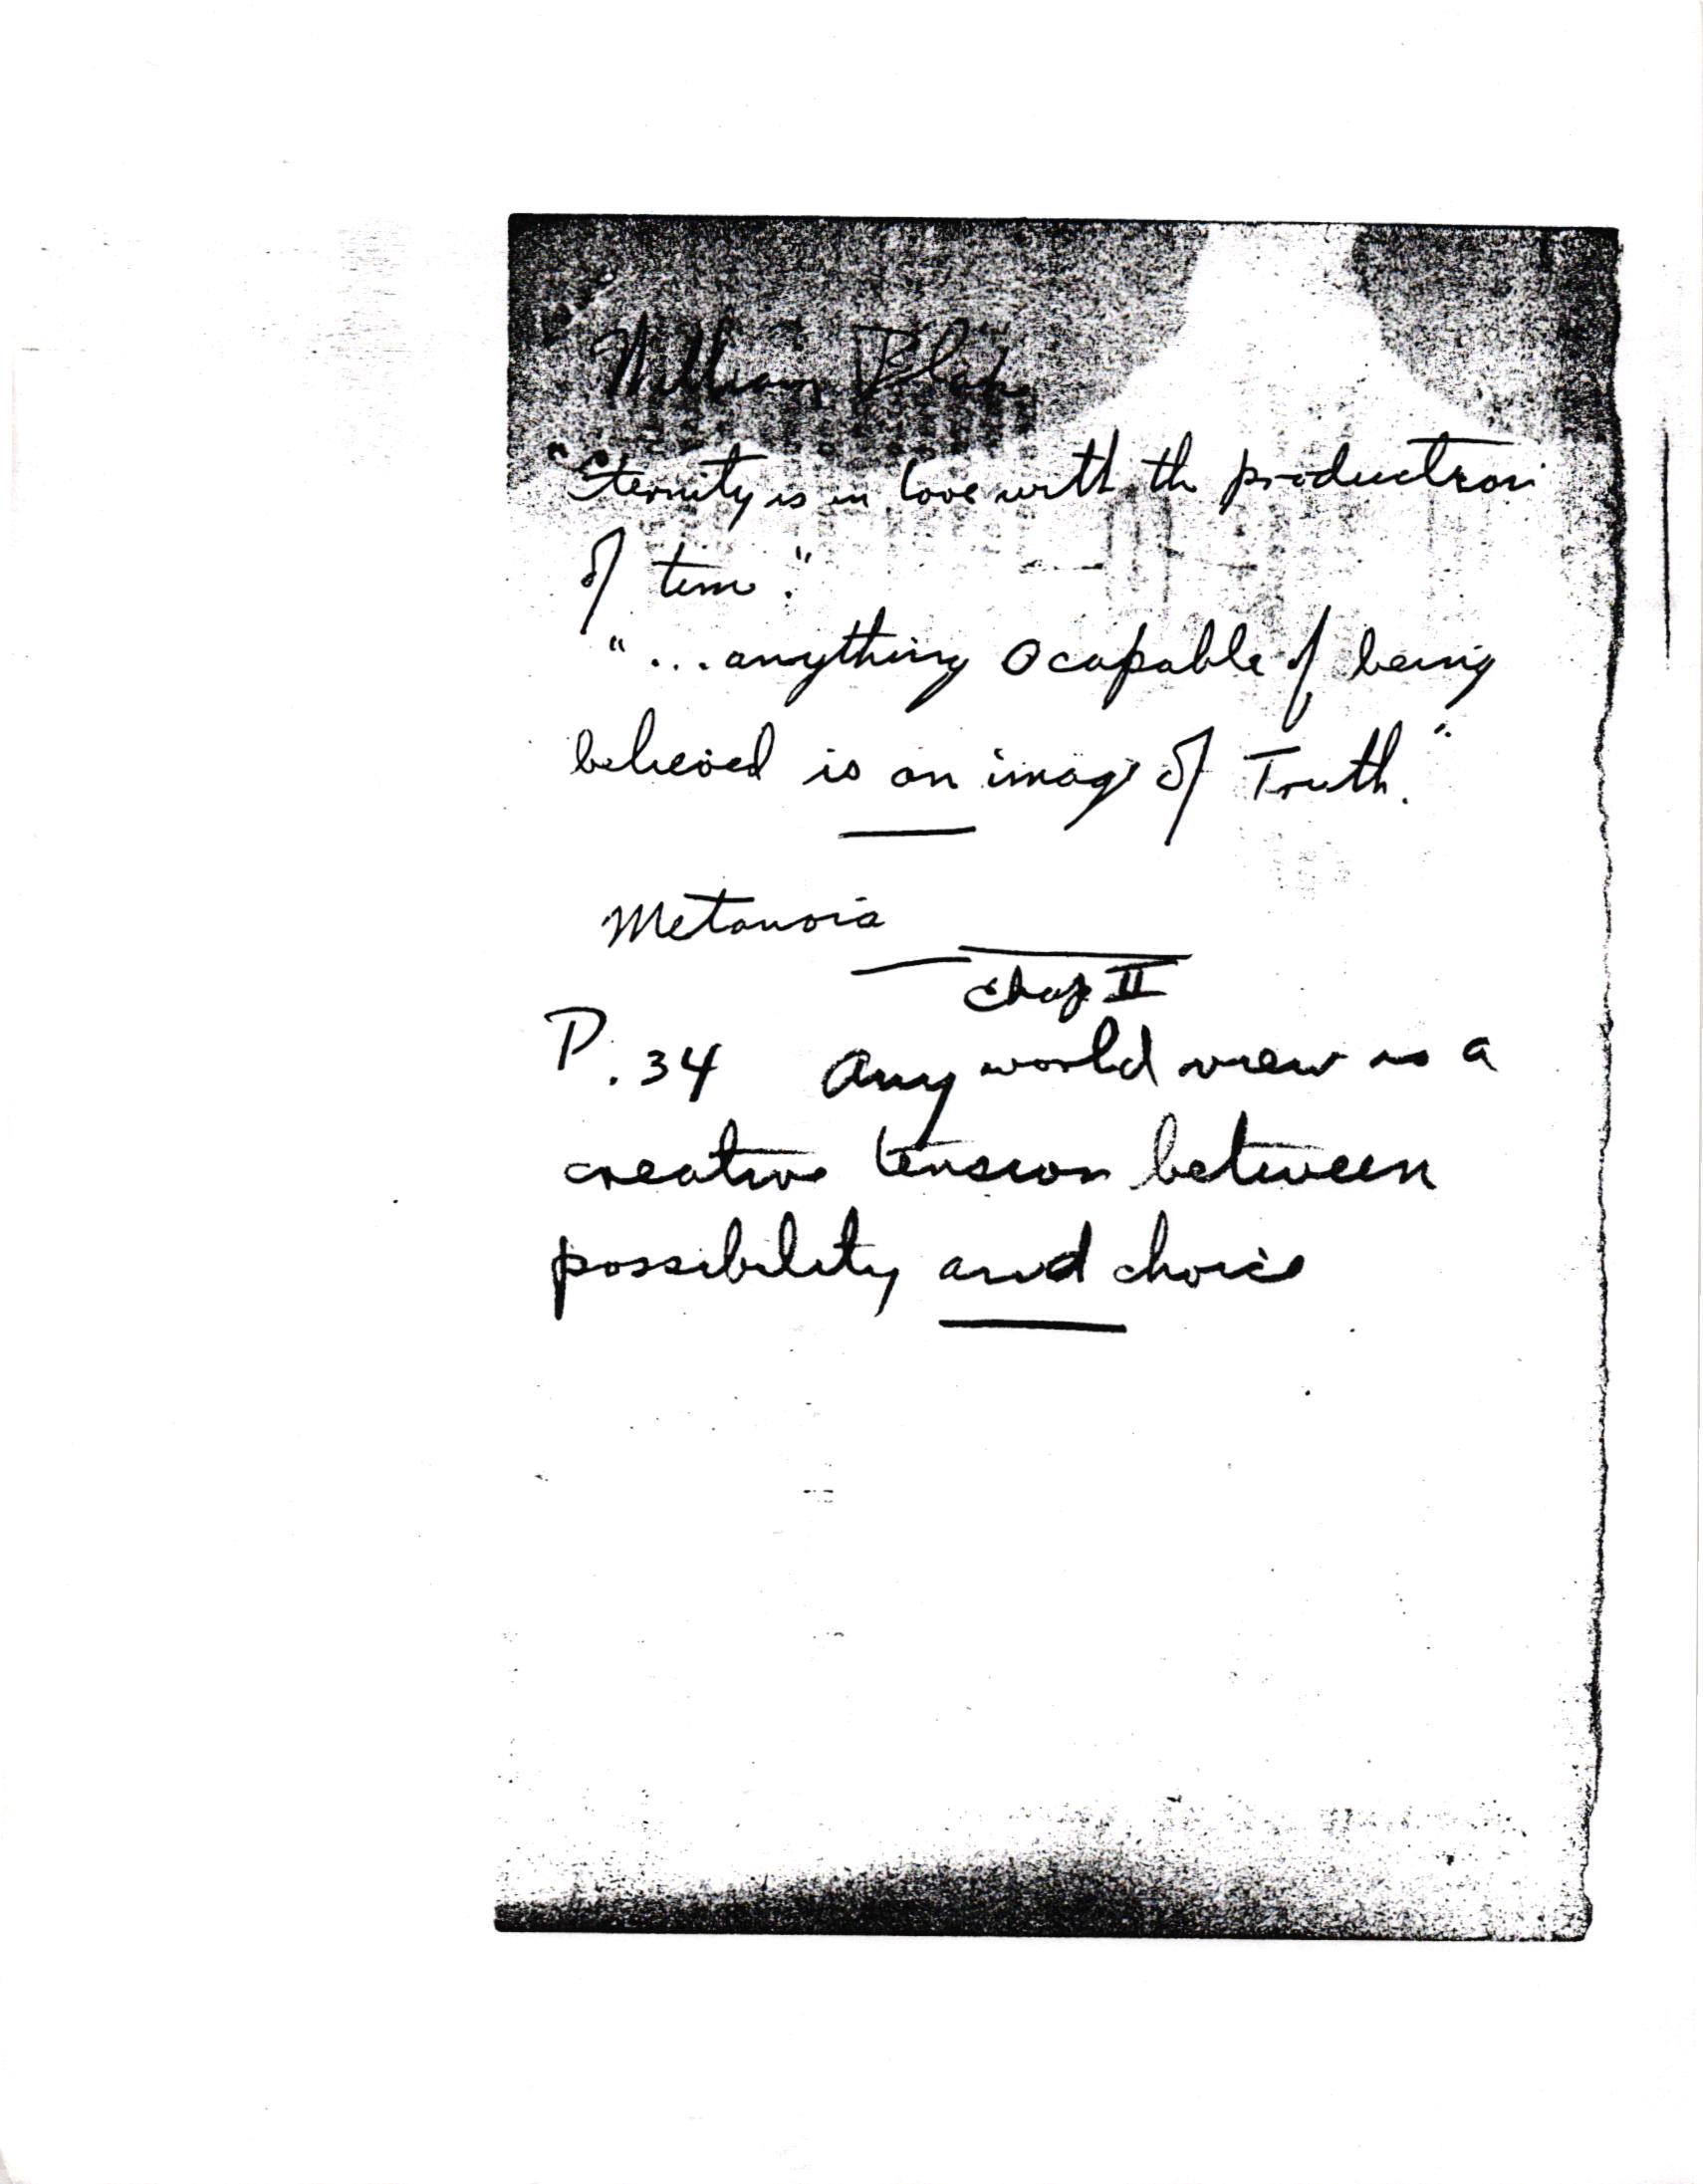 William Blake
"Eternity is in love with the production
of time."
"...anything capable of being
believed is an image of Truth."
Metanoia
Chap II
P. 34 Any world view is a
creative tension between
possibility and choice